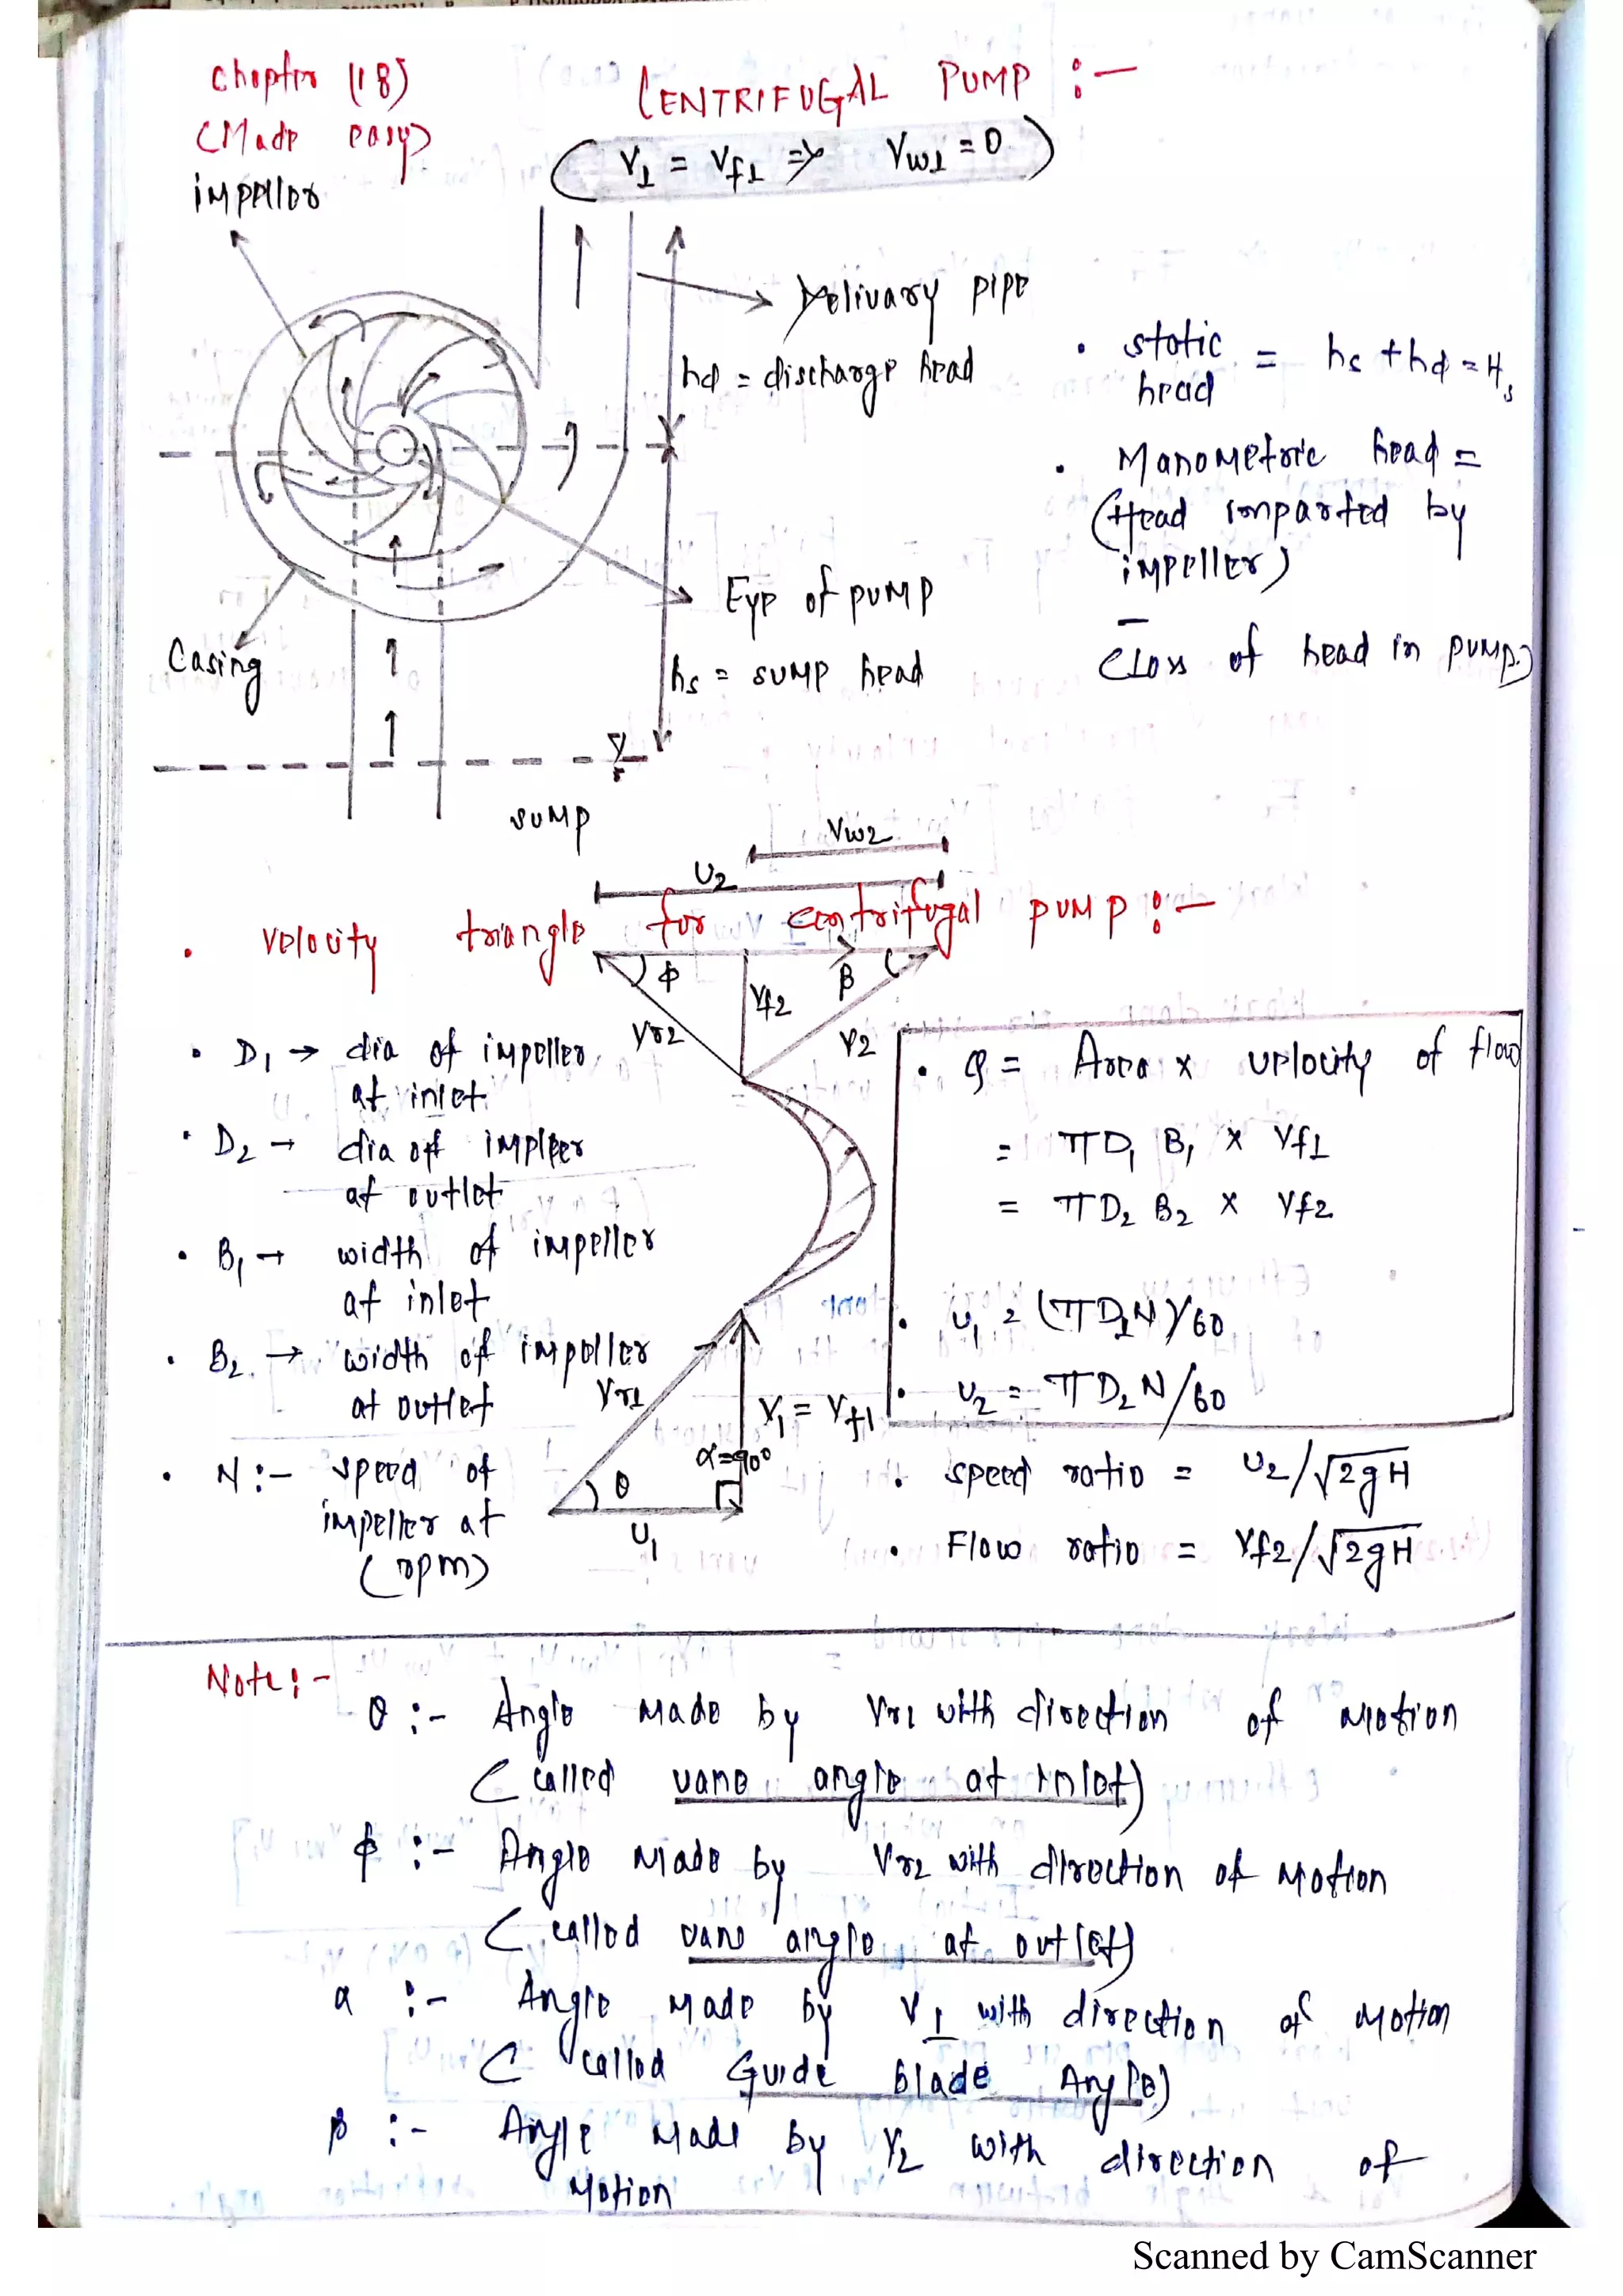 Chapter (18)
(Made easy)
CENTRIFUGAL PUMP :-
( V1 = Vf1 => Vw1 = 0 )
impellor
Delivary pipe
hd = discharge head
• static head = hs + hd = Hs
• Manometric head =
(Head imparted by
impeller)
-
(Loss of head in pump)
Eye of pump
Casing
hs = sump head
sump
Vw2
U2
• velocity triangle for centrifugal pump :-
ϕ
Vf2
β
Vr2
V2
• D1 → dia of impeller
at inlet
• D2 → dia off impleer
at outlet
• B1 → width of impeller
at inlet
• B2 → width of impeller
at outlet
• N :- speed of
impeller at
(rpm)
Vr1
V1 = Vf1
α=90°
θ
U1
• Q = Area x velocity of flow
= πD1 B1 x Vf1
= πD2 B2 x Vf2
• u1 = (πD1N)/60
• u2 = πD2N/60
• speed ratio = U2/√2gH
• Flow ratio = Vf2/√2gH
Note :-
θ :- Angle made by Vr1 with direction of motion
(called vane angle at inlet)
ϕ :- Angle made by Vr2 with direction of motion
(called vane angle at outlet)
α :- Angle made by V1 with direction of motion
(called Guide blade Angle)
β :- Angle made by V2 with direction of
motion
Scanned by CamScanner